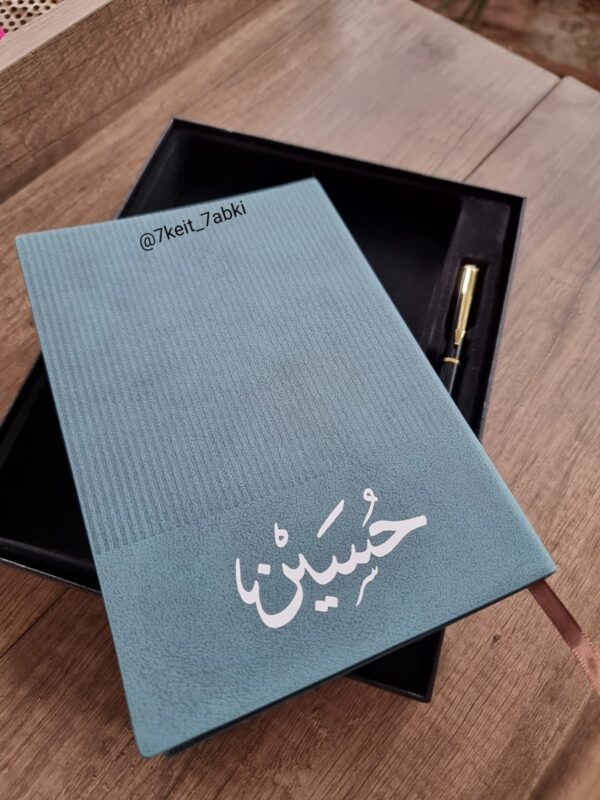 @7keit_7abki
حُسَيْن